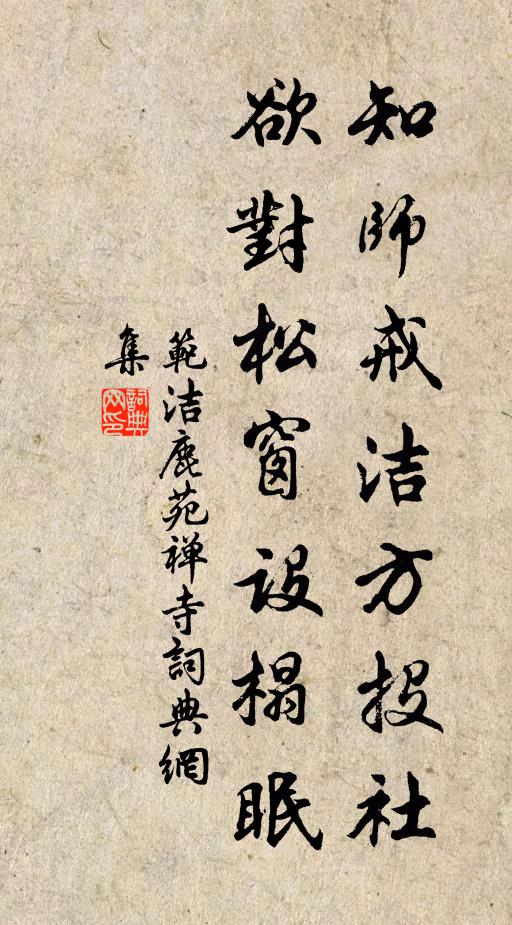 知師戒洁方投社
欲對松窗設榻眠
範洁鹿苑禅寺詞典網
集
詞典网印